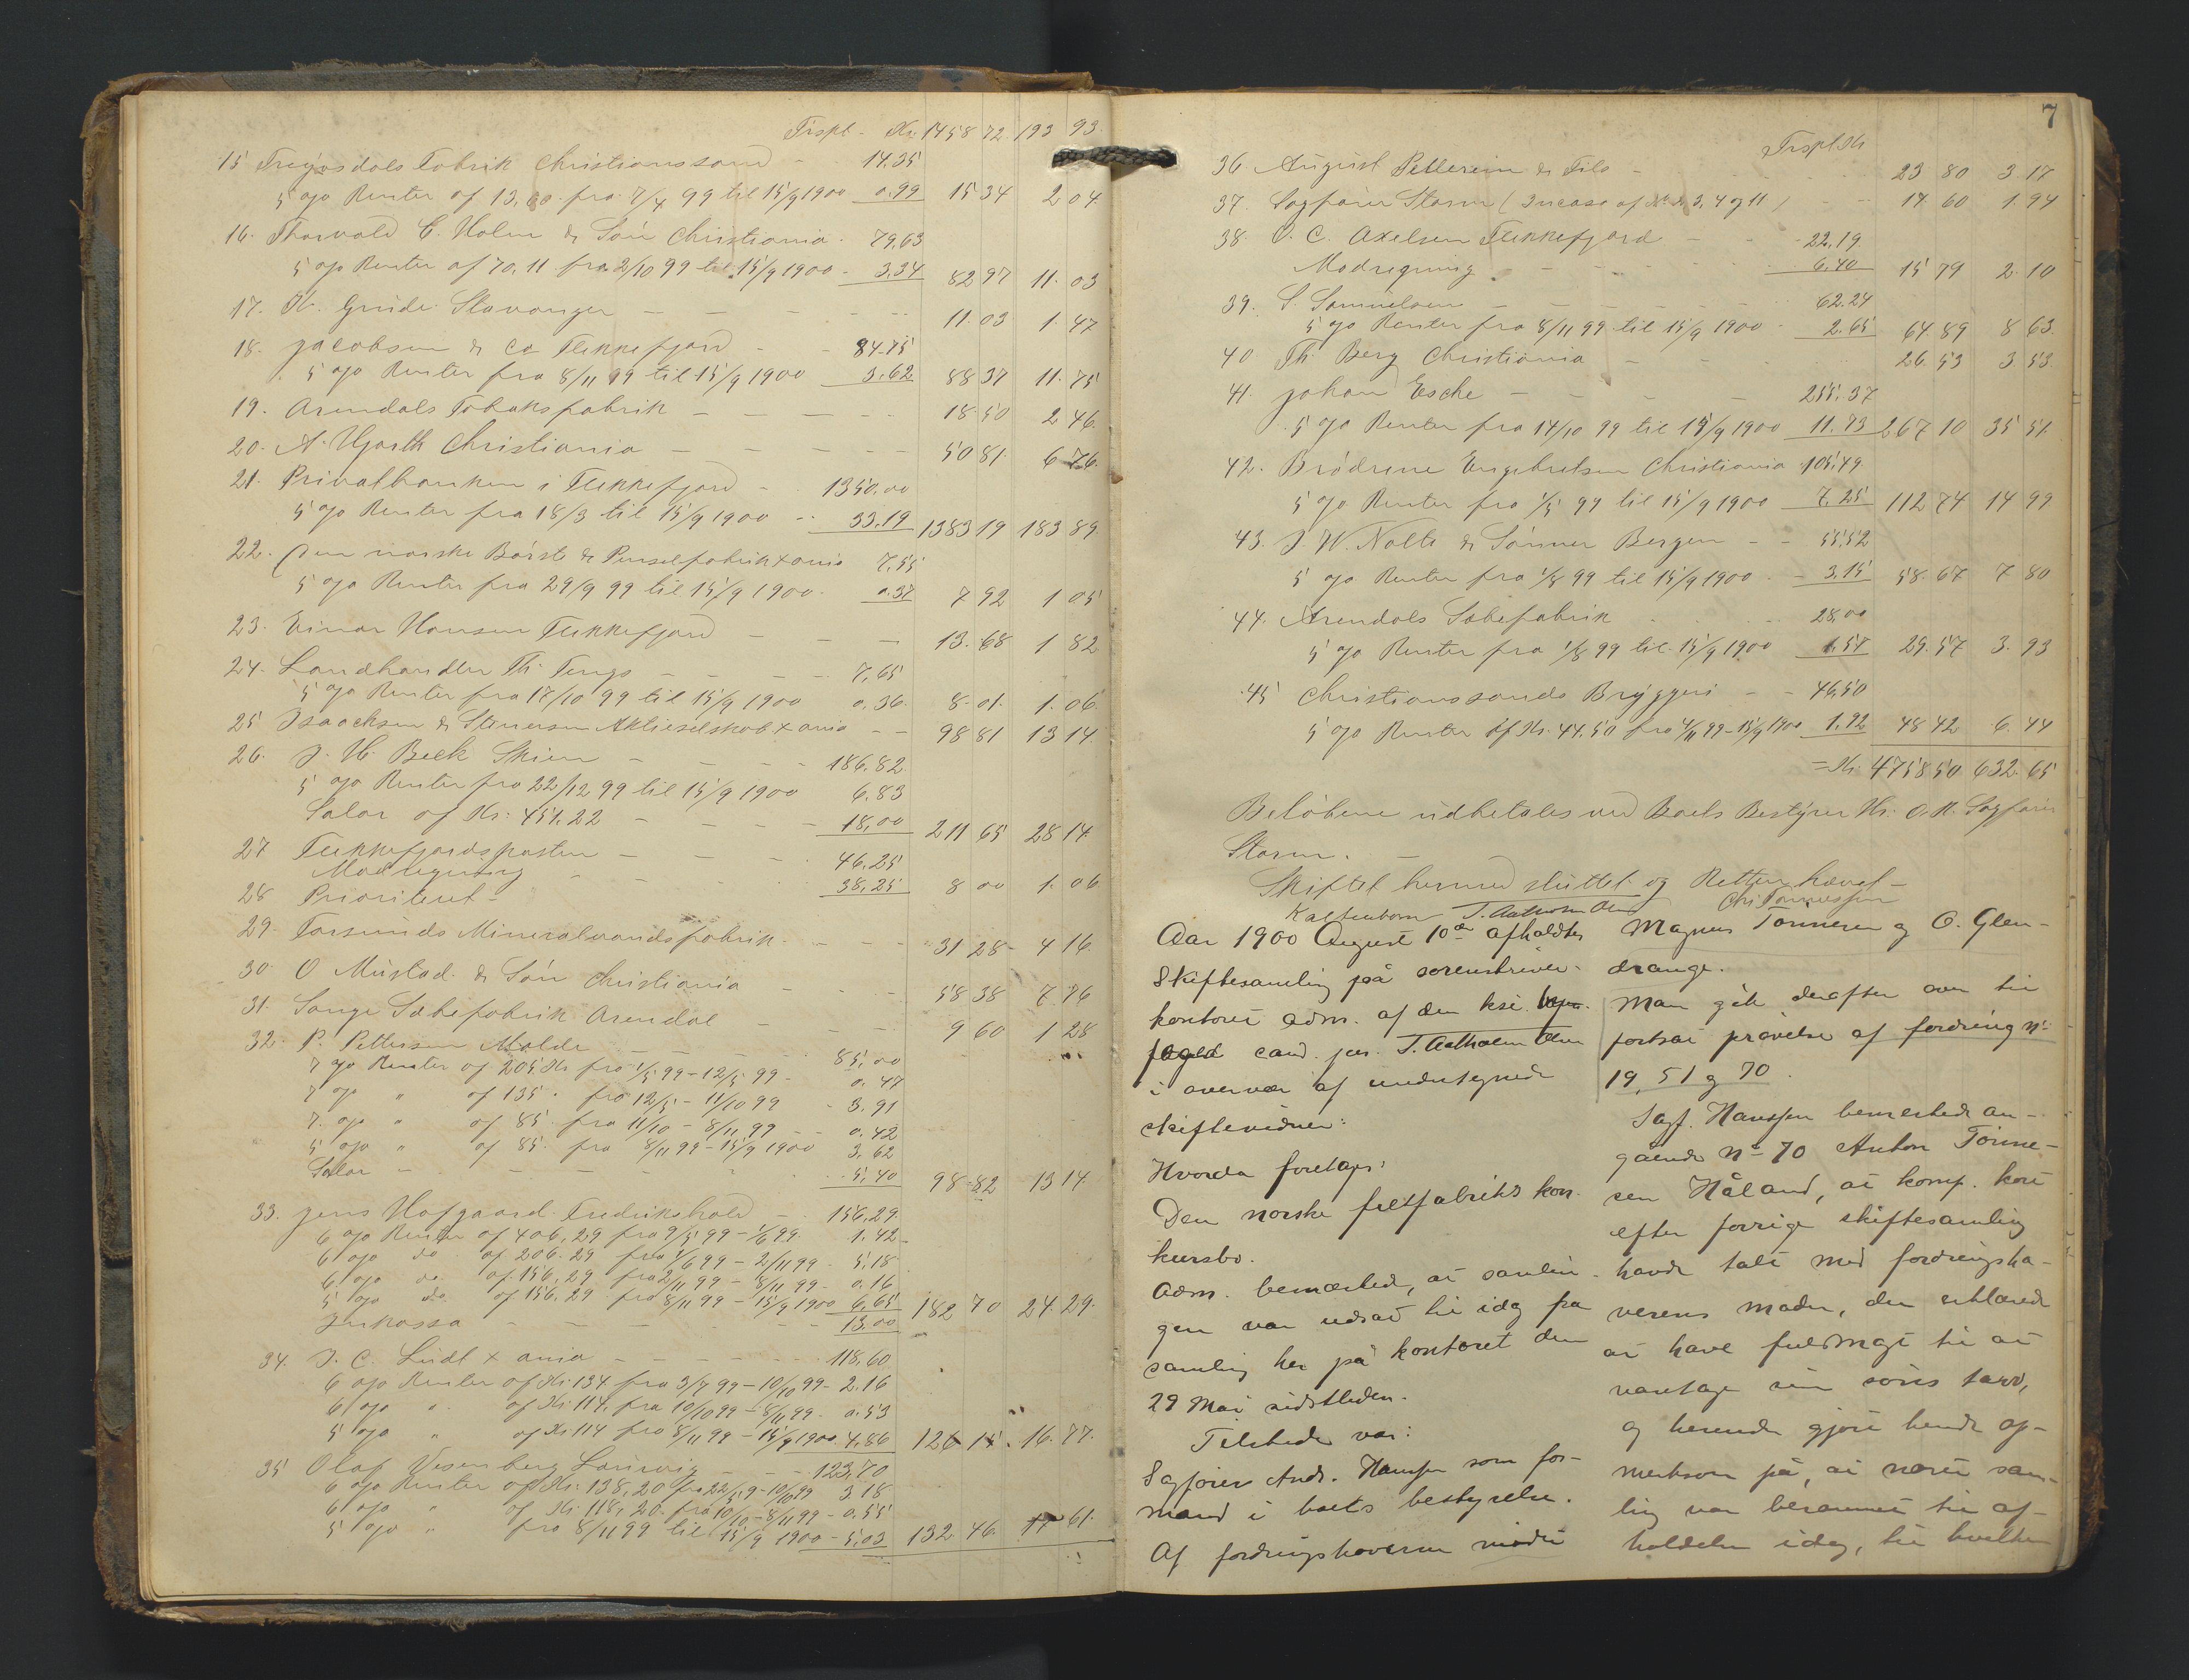 Trspt - Kr. 1458 72 193 93
15 Fabrik Christianssand - 14.35
5 o/o Renter af 13,60 fra 7/4 99 til 15/9 1900 0.99 15 34 2 04
16. Thorvald C. Holm & Søn Christiania - 79,63
5 o/o Renter af 70.11 fra 2/10 99 til 15/9 1900 - 3.34 82 97 11. 03
17. K. Grude Stavanger - - - 11. 03 1. 47
18. Jacobsen & Co Flekkefjord - - 84.75
5 o/o Renter fra 8/11 99 til 15/9 1900 3.62 88 37 11. 75
19. Arendals Tobaksfabrik - - - 18. 50 2 46.
20. A. Hjorth Christiania - - - 50 81. 6 76.
21. Privatbanken i Flekkefjord - 1350.00
5 o/o Renter fra 18/3 til 15/9 1900 - 33.19 1383 19 183 89.
22. Den norske Børste & Penselfabrik Xania 7,55
5 o/o Renter fra 29/9 99 til 15/9 1900. 0.37 7 92 1 05
23. Einar Hansen Flekkefjord - - - 13. 68 1 82
24. Landhandler Th. Tengs - - - 7,65
5 o/o Renter fra 17/10 99 til 15/9 1900 0.36. 8. 01. 1. 06
25 Isaachsen & Aktieselskab Xania - - 98 81 13 14.
26. J. H. Beck Skien - - - 186,82
5 o/o Renter fra 22/12 99 til 15/9 1900 6.83
Salær af Kr. 451.22 - - - 18,00 211 65 28 14.
27 Flekkefjordsposten - - - 46.25
Modregning 38,25 8 00 1. 06
28 Prioriteret -
29. Farsunds Mineralvandsfabrik - - - 31 28 - 4 16.
30. O Mustad & Søn Christiania - - - 58 38 7. 76
31. Sæbefabrik Arendal - - - 9 60 1 28
32. P. Pettersen Molde - - - 85,00
7 o/o Renter af 205 Kr fra 1/5 99 - 12/5 99 - 0. 47
7 o/o " af 135. fra 12/5 - 11/10 99 - 3.91
7. o/o " af 85. fra 11/10 - 8/11 99 - - 0.42
5 o/o " af 85. fra 8/11 99 - 15/9 1900 3,62
Salær - - - 5,40 98 82 13 14
33. Jens Hafgaard Fredrikshald - - 156,29
6 o/o Renter af 406,29 fra 9/5 99 - 1/6 99. 1.42
6 o/o do af 206.29 fra 1/6 99 - 2/11 99 - 5,18
6 o/o do af 156,29 fra 2/11 99 - 8/11 99 - 0,16
5 o/o do af 156.29 fra 8/11 99 - 15/9 1900 6,65 182 70 24. 29.
Inkasso - - - 13.00
34. J. C. Xania - - - 118,60
6 o/o Renter af Kr. 134 fra 3/7 99 - 10/10 99 - 2.16
6 o/o " af Kr. 114. fra 10/10 99 - 8/11 99. 0.53
5 o/o " af Kr 114 fra 8/11 99 - 15/9 1900. 4,86 126 15. 16. 77.
35 Olaf Laurvig - - 123,70
6 o/o Renter af Kr. 138,20 fra 22/5 9 - 10/10 99 3 18
6 o/o " af Kr. 118,20. fra 10/10 - 8/11 99 - 0.55
5 o/o " fra 8/11 99 til 15/9 1900 - 5,03 132 46. 17 61.
7
Trspt Kr
36 August Pettersen & - 23 80 3 17
37. Sagfører Storm (Incasso af No 2, 3, 4 og 11) - - 14 60 1.94
38. O. C. Axelsen Flekkefjord - - 22,19.
Modregning - - - 6,40 15 79 2. 10
39. S. Samuelsen - - - 62.24
5 o/o Renter fra 8/11 99 til 15/9 1900 - 2.65 64 89 8 63.
40 Th. Berg Christiania - - 26. 53 3 53
41. Johan Esche - - - 255,37
5 o/o Renter fra 14/10 99 til 15/9 1900 11.73 267 10 35 51.
42. Brødrene Engebretsen Christiania 105,49
5 o/o Renter fra 1/5 99 til 15/9 1900 - 7,25 112 74 14 99
43. J. W. Nolte & Sønner Bergen - - 55,52
5 o/o Renter fra 1/8 99 til 15/9 1900 - - 3,15 58. 67 7 80
44. Arendals Sæbefabrik 28,00
5 o/o Renter fra 1/8 99 til 15/9 1900 1.57 29. 57 3. 93
45 Christianssands Bryggeri - - 46,50
5 o/o Renter af Kr. 44.50 fra 4/11 99 - 15/9 1900 1.92 48 42 6. 44
= Kr. 4758 50 632. 65
Beløbene udbetales ved Boets Bestyrer Hr. O. R. Sagfører
Storm. -
Skiftet hermed sluttet og Retten hævet -
Kaltenborn T. Aasholm Olsen Chr. Tønnessen
Aar 1900 August 10de afholdtes
Skiftesamling på sorenskriver-
kontoret adm. af den kst. byfoged
cand. jur. T. Aasholm Olsen
i overvær af undertegnede
skiftevidner:
Hvorda foretoges:
Den norske filtfabriks kon-
kursbo.
Adm. bemærkede, at samlin-
gen var udsat til idag fra
samling her på kontoret den
29 Mai sidstleden.
Tilstede var:
Sagfører Andr. Hanssen som for-
mand i boets bestyrelse.
Af fordringshaverne mødte
Magnus Tønnesen og O. Glen-
drange.
Man gik derefter over til
fortsat prøvelse af fordring No
19, 51 og 70.
Sagf. Hanssen bemerkede an-
gående No 70 Anton Tønne-
sen Håland, at komp. kort
efter forrige skiftesamling
havde talt med fordringsha-
verens moder, der erklærede
at have fuldmagt til at
varetage sin søns tarv,
og herunder gjort hende op-
merksom på, at næste sam-
ling var berammet til af-
holdelse idag, til hvilken